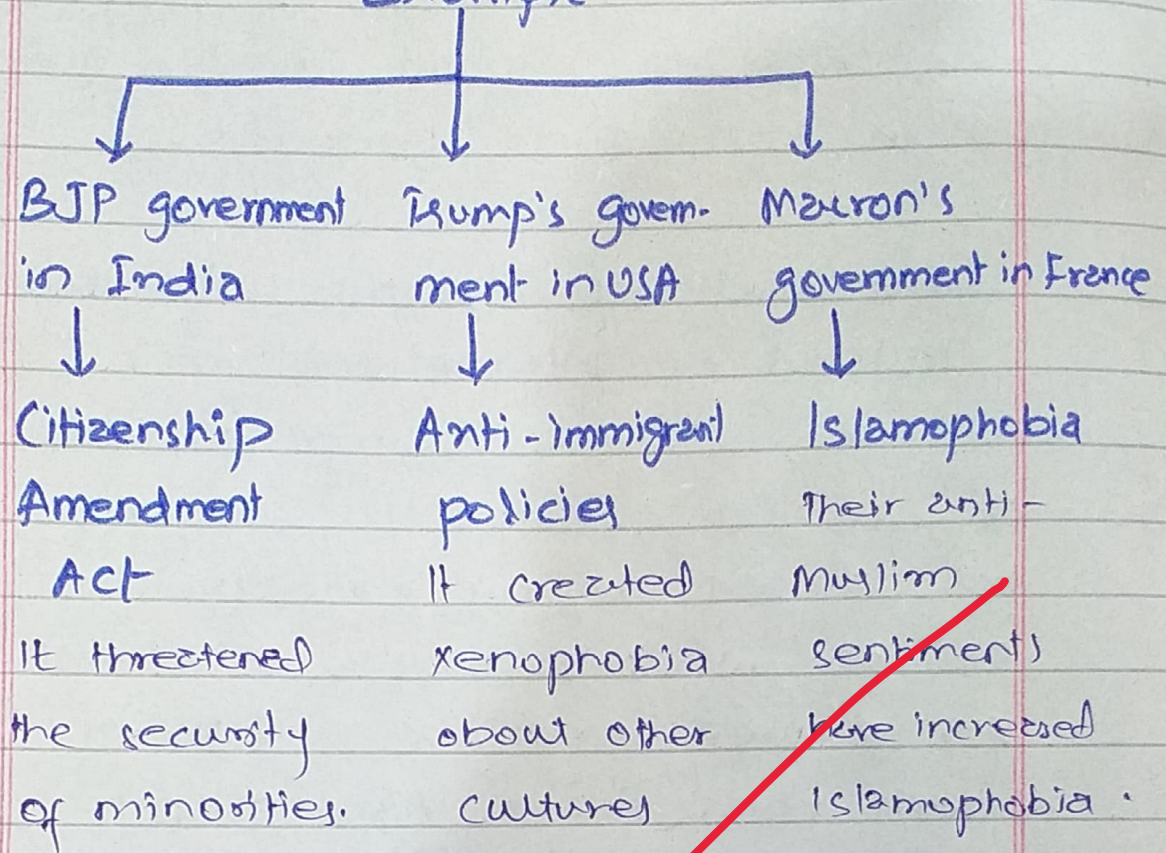 Example
BJP government
in India
Citizenship
Amendment
Act
It threatened
the security
of minorities.
Trump's govern-
ment in USA
Anti-immigrant
policies
It created
xenophobia
about other
cultures
Macron's
government in France
Islamophobia
Their anti-
Muslim
sentiments
have increased
Islamophobia.